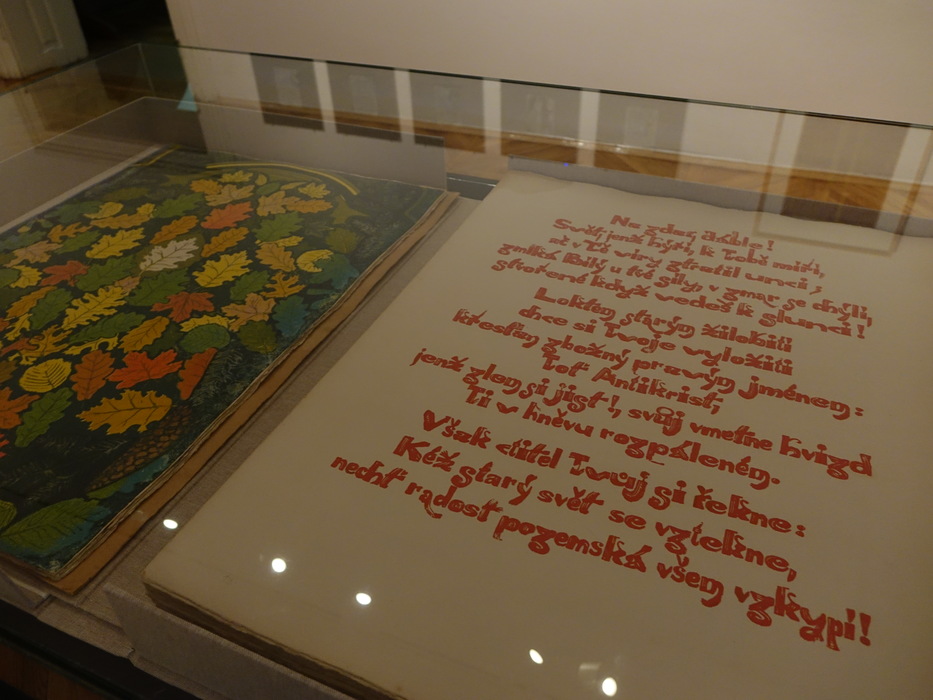 Na zdar, Ďáble!
Svůj jenž kyti, k Tobě míří,
až v Tě víry ztratil unci;
zniká Bílý u tvé síly, v zmar se chýlí,
stvořené když vedeš k slunci!
Loktem starým žilobití
chce si Tvoje vyložiti
křestím zbožný pravým jménem:
Toť Antikrist,
jenž zlem si jist!, svůj vmetne hvizd
Ti v hněvu rozpáleném.
Však ctitel Tvůj si řekne:
Kéž starý svět se vztekne,
nechť radost pozemská všem vzkypí!